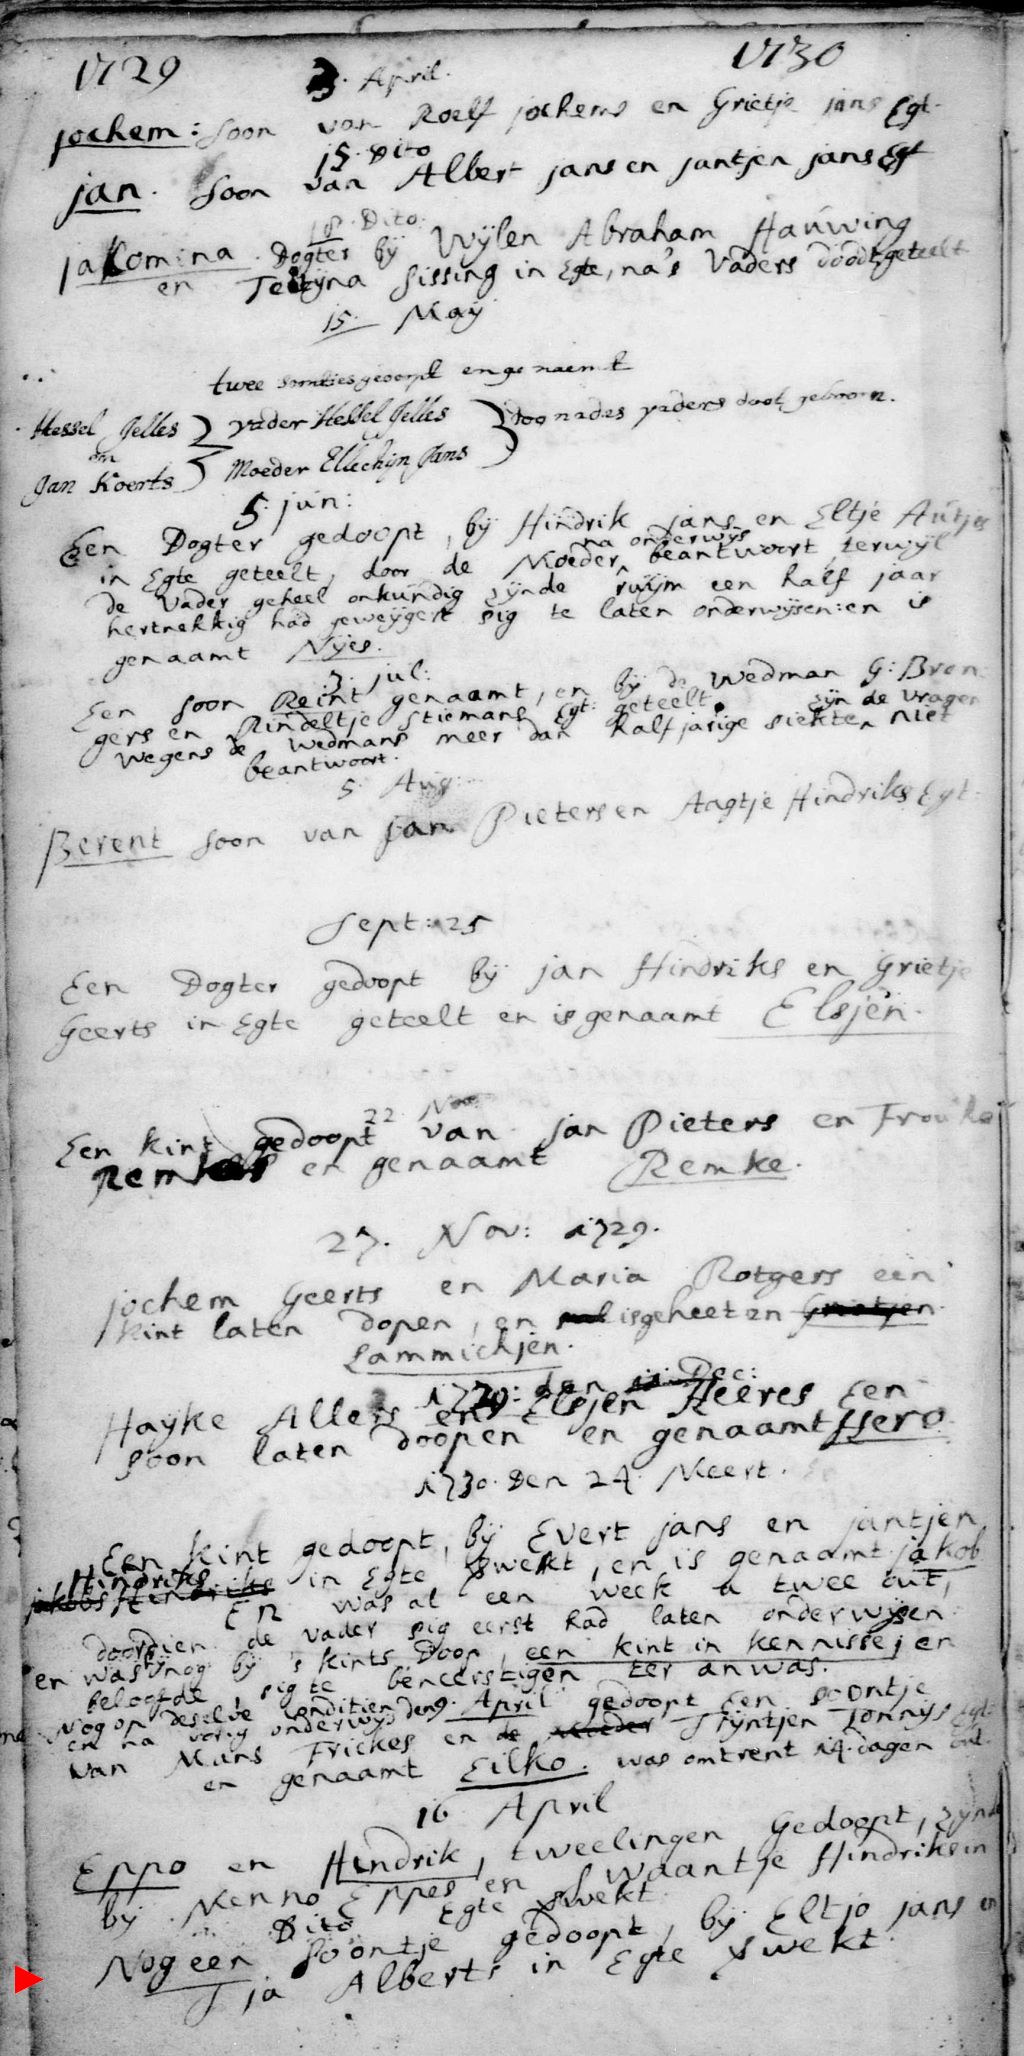 1729 1730
3. April.
jochem: soon van Roelf jochems en Grietje jans Egt.
15. Dito
jan. soon van Albert jans en jantjen jans Egt
18. Dito.
jakomina. Dogter bÿ Wÿlen Abraham Hauwing
en sissing in Egte, na's Vaders doodt geteelt
15. Maÿ
twee en genaemt
Hessel Jelles vader Hessel Jelles nades vaders doot geboorn.
en
Jan Koerts Moeder Ellechijn Jans
5. jun:
Een Dogter gedoopt, bÿ Hindrik jans en Eltje
na onderwÿs
in Egte geteelt, door de Moeder, beantwoort, terwÿl
de Vader geheel onkundig zÿnde ruÿm een half jaar
hertnekkig had geweÿgert sig te laten onderwÿsen: en is
genaamt Nÿes.
3. jul:
Een soon Reint genaamt, en bÿ de Wedman G: Bron
gers en Rindeltje Stiemans Egt: geteelt. zÿn de vragen
wegens de Wedmans meer dan halfjarige siekte niet
beantwoort.
5. Aug
Berent soon van jan Pieters en Aagtje Hindriks Egt.
Sept: 25
Een Dogter gedoopt bÿ jan Hindriks en Grietje
Geerts in Egte geteelt en is genaamt Elsjen.
22 Nov:
Een kint gedoopt van jan Pieters en Frouke
Remkes en genaamt Remke.
27. Nov: 1729.
jochem Geerts en Maria Rotgers een
kint laten dopen, en is geheeten Grietjen
Lammichjen.
1729: den Dec:
Haÿke Allers en Elsjen Heeres Een
soon laten doopen en genaamt Hero.
1730. Den 24. Meert.
Een kint gedoopt, bÿ Evert jans en jantjen
Hindriks in Egte verwekt, en is genaamt jakob
En was al een week a twee out,
doordien de vader sig eerst had laten onderwÿsen
en was nog bÿ 's kints Doop, een kint in kennisse, en
beloofde, sig te beneerstigen ter anwas.
Nog op deselve Conditien den 9. April gedoopt Een soontje
en na vorig onderwÿs
van Mans Frickes en de Moeder Trÿntjen Tonnÿs Egt.
en genaamt Eilko. was omtrent 14. dagen out.
16 April
Eppo en Hindrik, tweelingen Gedoopt, zÿnde
bÿ Menno Eppes en Swaantje Hindriks in
Egte verwekt.
Dito
Nog een soontje gedoopt, bÿ Eltjo jans en
Tja Alberts in Egte verwekt.